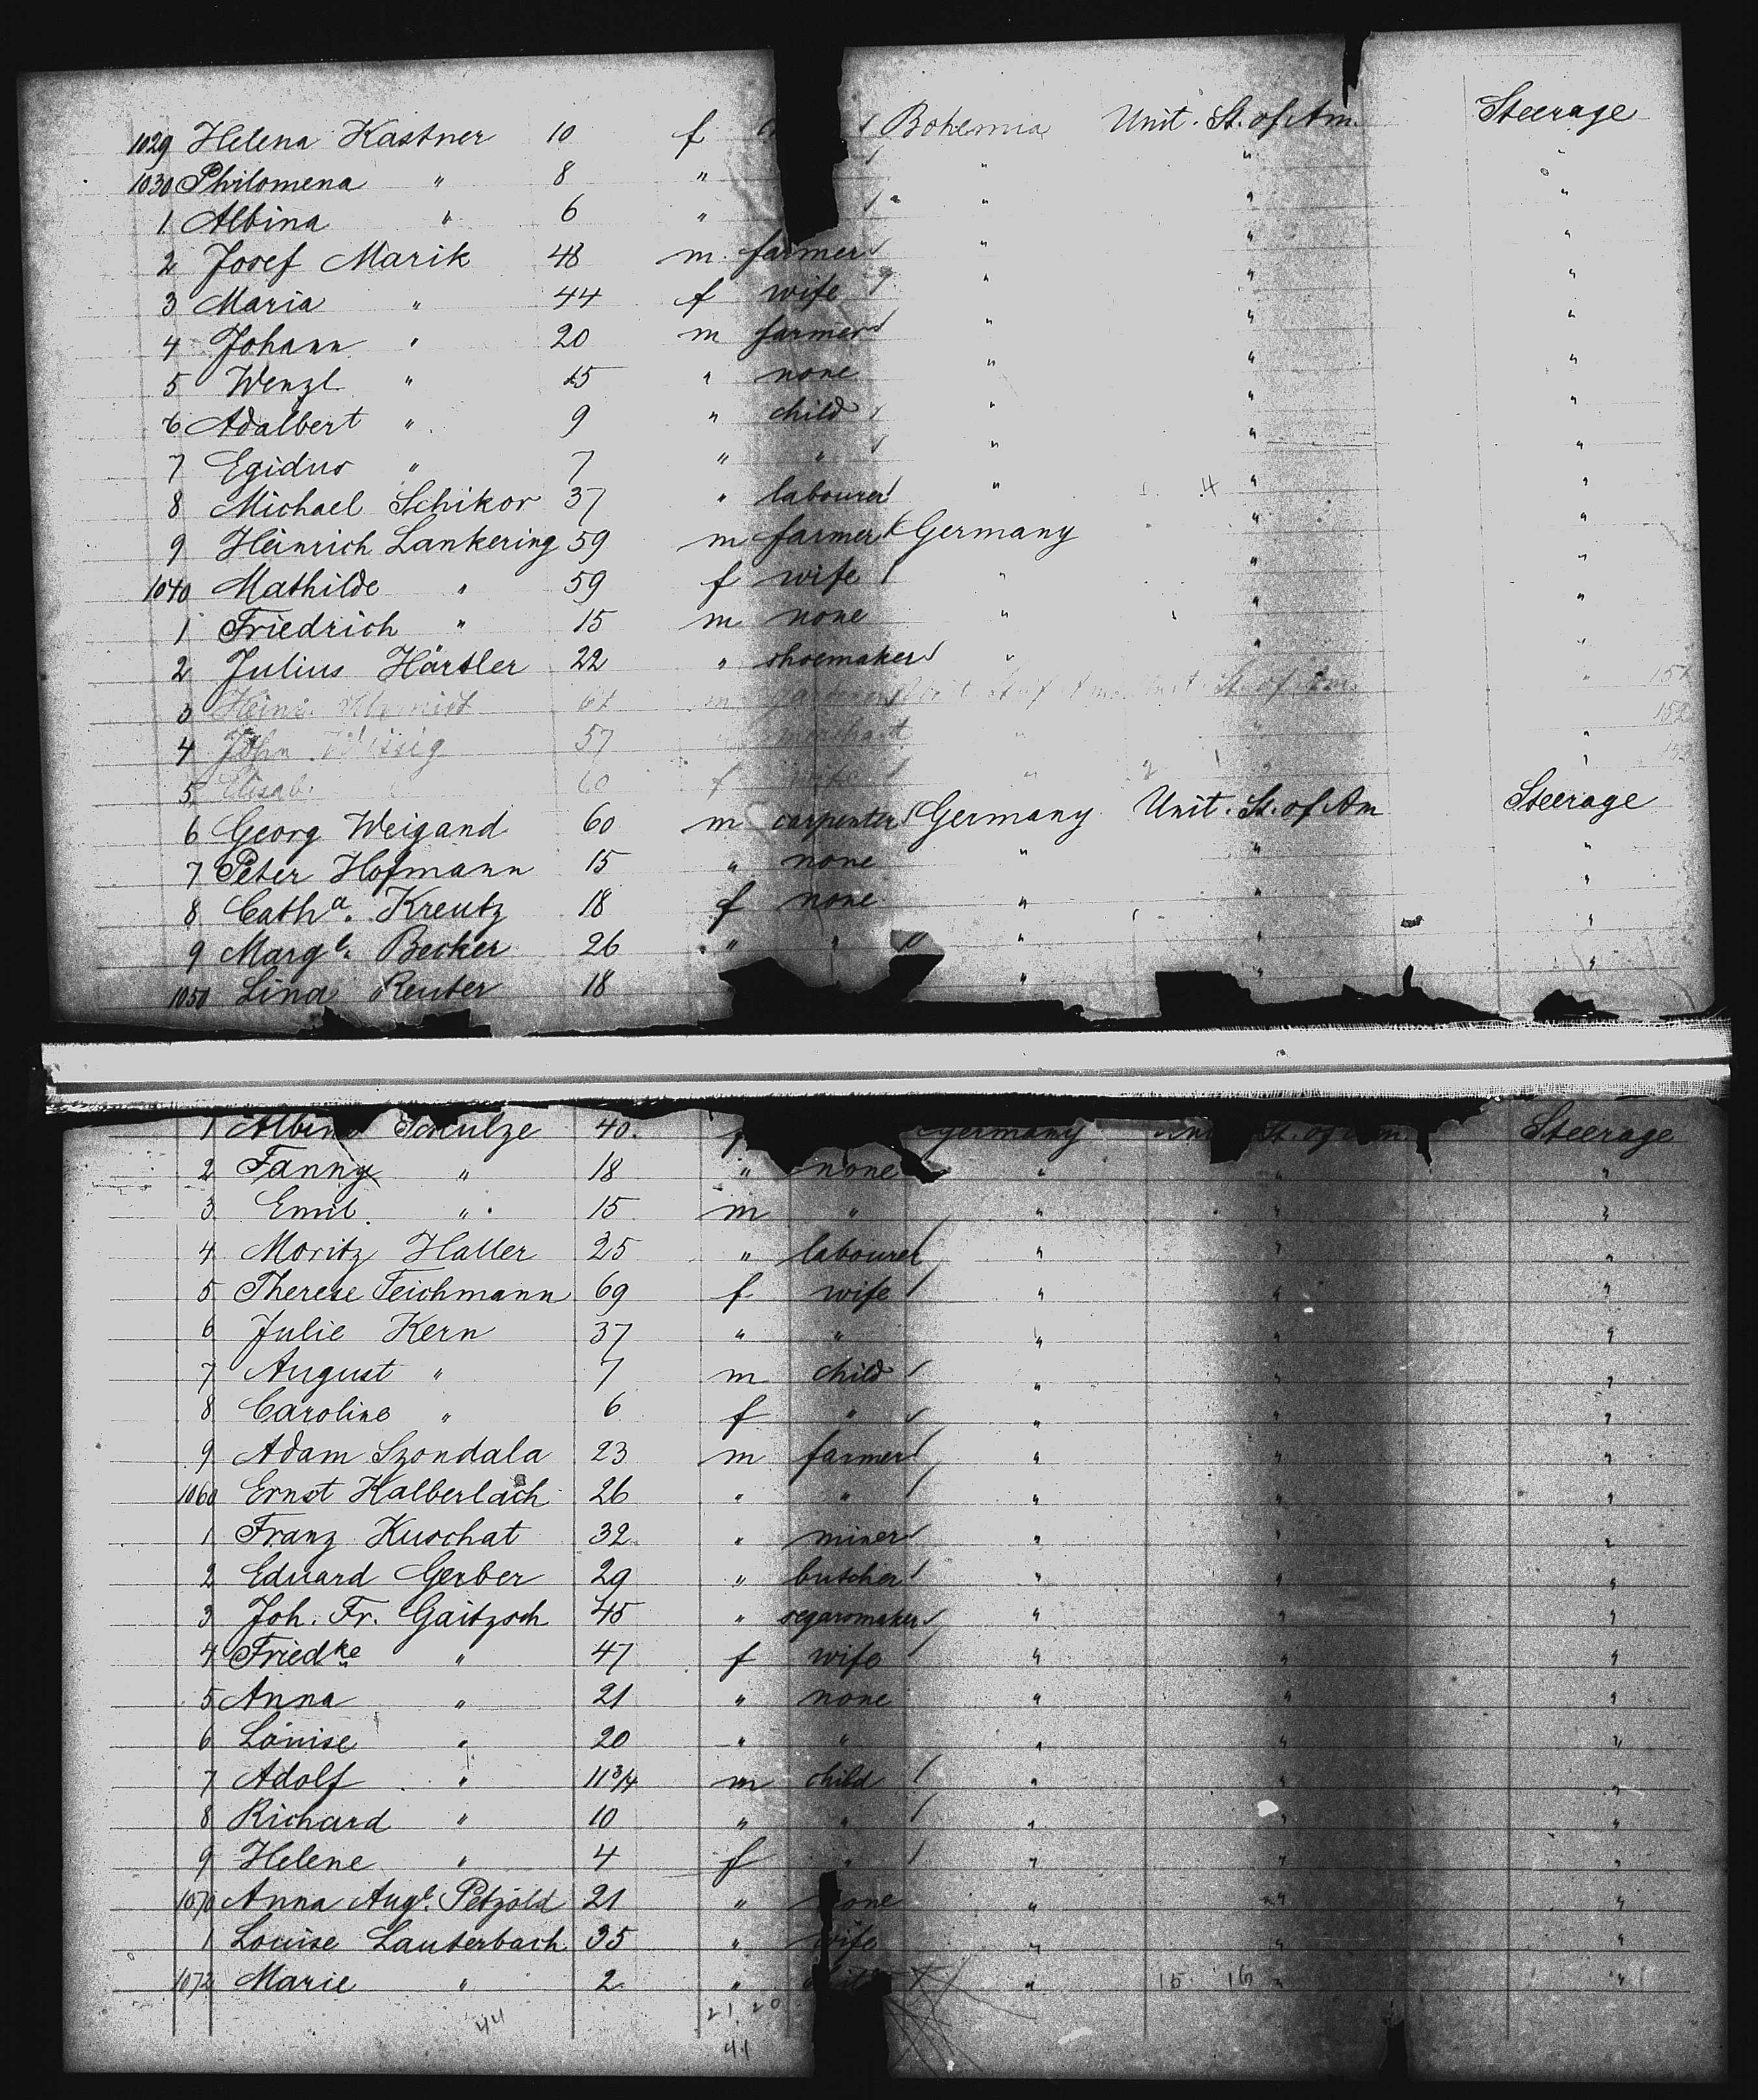 1029 Helena Kastner 10 f Bohemia Unit. St. of Am. Steerage
1030 Philomena " 8 " " " "
1 Albina " 6 " " " "
2 Josef Marik 48 m. farmer " " "
3 Maria " 44 f wife " " "
4 Johann " 20 m farmer " " "
5 Wenzl " 15 " none " " "
6 Adalbert " 9 " child " " "
7 Egidus " 7 " " " " "
8 Michael Schikor 37 " labourer " " "
9 Heinrich Lankering 59 m farmer Germany " "
1040 Mathilde " 59 f wife " " "
1 Friedrich " 15 m none " " "
2 Julius Härtler 22 " shoemaker " " "
3 Heinr. m St. of Am. " 151
4 John Wissig 57 merchant " " " 152
5 Elisab. 60 f wife " " " 153
6 Georg Weigand 60 m carpenter Germany Unit. St. of Am Steerage
7 Peter Hofmann 15 " none " " "
8 Cath a. Kreutz 18 f none " " "
9 Marg e. Becker 26 " " " " "
1050 Lina Reuter 18 " " "
1 Albina Schulze 40. Germany St. of Am. Steerage
2 Fanny " 18 " none " " "
3 Emil. " 15 m " " " "
4 Moritz Haller 25 " labourer " " "
5 Therese Teichmann 69 f wife " " "
6 Julie Kern 37 " " " " "
7 August " 7 m child " " "
8 Caroline " 6 f " " " "
9 Adam Szondala 23 m farmer " " "
1060 Ernst Halberlach 26 " " " " "
1 Franz Kuschat 32 " miner " " "
2 Eduard Gerber 29 " butcher " " "
3 Joh. Fr. Gaitzsch 45 " segarsmaker " " "
4 Friedke " 47 f wife " " "
5 Anna " 21 " none " " "
6 Louise " 20 " " " " "
7 Adolf " 11 3/4 m child " " "
8 Richard " 10 " " " " "
9 Helene " 4 f " " " "
1070 Anna Auge. Petzold 21 " none " " "
1 Louise Lauterbach 35 " wife " " "
1072 Marie " 2 " " 15 16 " "
44 21 20
41